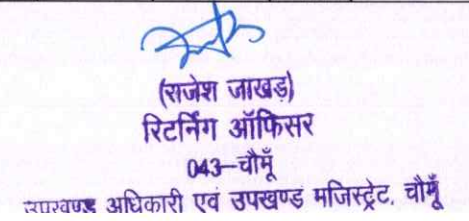 (राजेश जाखड़)
रिटर्निंग ऑफिसर
043-चौमूँ
उपखण्ड अधिकारी एवं उपखण्ड मजिस्ट्रेट, चौमूँ